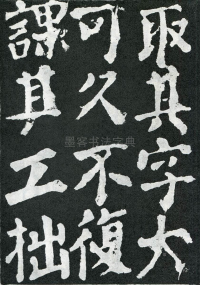 取其字大
可久不復
課其工拙
墨客书法字典